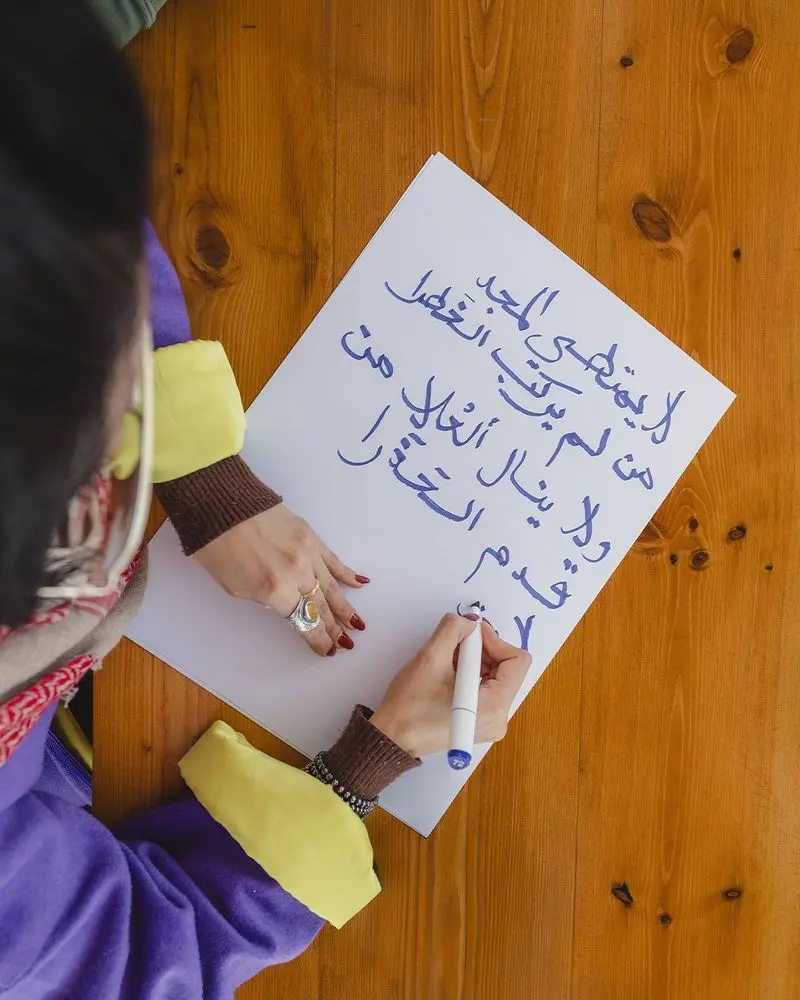 لا يمتطى المجد
من لم يركب الخَطرا
ولا ينال ألعُلا من
قدم الحَذَرا
72